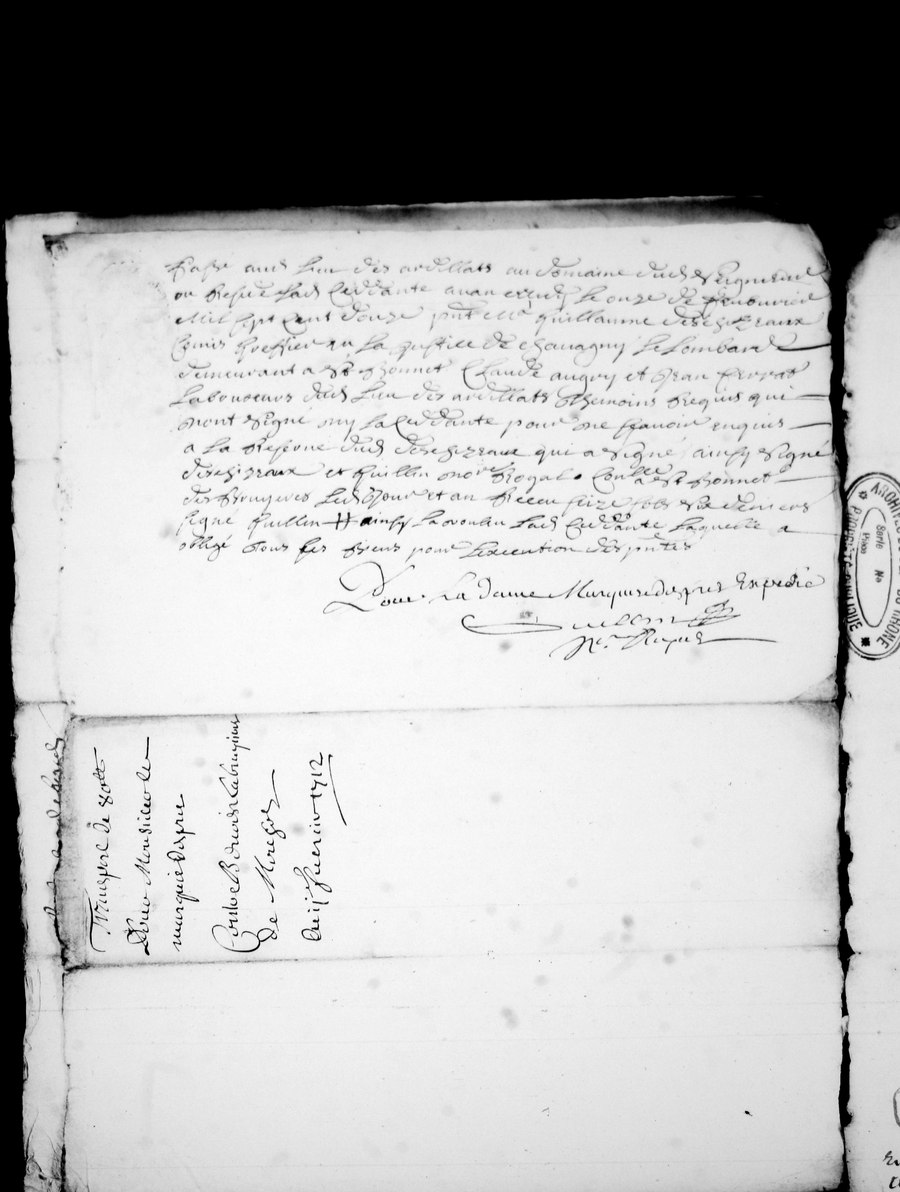 aud lieu des ardillats au domaine dud Seigneur
ou Reside lad Ceddante avan le onze de
Mil sept Cent douze pnt Me Guillaume deschizeaux
Comis Greffier en La Justice de chavagny Le Lombard
demeurant a St Bonnet Claude augry et Jean
Laboureurs dud lieu des ardillats thesmoins Requis qui
nont signé ny la Ceddante pour ne scavoir enquis
a la Reserve dud deschizeaux qui a signé ainsy signé
deschizeaux et Guillin nore Royal Conlle a St Bonnet
des bruyeres led Jour et an Receu seize sols six deniers
signé Guillin ainsy la voulu lad Ceddante laquelle a
obligé tous ses biens pour Lexecution des pntes
Pour La dame Marquise despres Expedié
Guillin
Nre Royal
Transport de 80tt
Pour Monsieur le
marquis despres
Contre Benoist Labruyere
de
du 11 fuerier 1712
ARCHIVES DU RHONE
PROPRIÉTÉ PUBLIQUE
Série No
Pièce